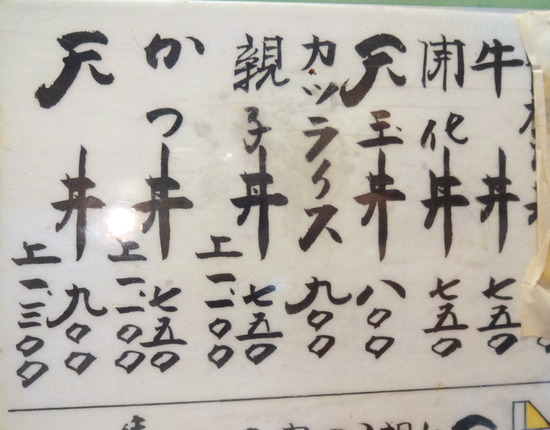 牛丼 七五〇
開化丼 七五〇
天玉丼 八〇〇
カツライス 九〇〇
親子丼 七五〇
上 一、二〇〇
かつ丼 七五〇
上 一、二〇〇
天丼 九〇〇
上 一、三〇〇